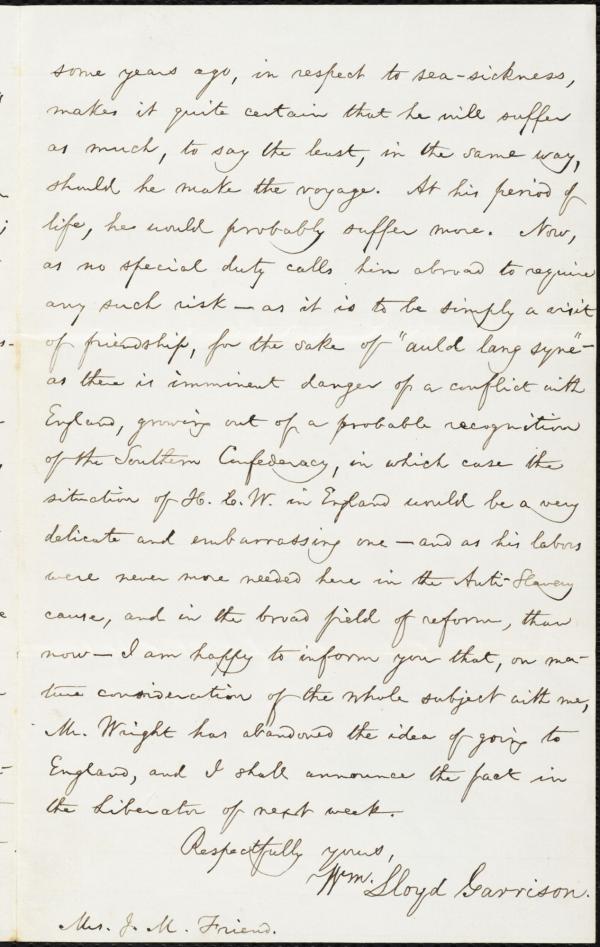 some years ago, in respect to sea-sickness,
makes it quite certain that he will suffer
as much, to say the least, in the same way,
should he make the voyage. At his period of
life, he would probably suffer more. Now,
as no special duty calls him abroad to require
any such risk — as it is to be simply a visit
of friendship, for the sake of "auld lang syne" —
as there is imminent danger of a conflict with
England, growing out of a probable recognition
of the Southern Confederacy, in which case the
situation of H. C. W. in England would be a very
delicate and embarrassing one — and as his labors
were never more needed here in the Anti-Slavery
cause, and in the broad field of reform, than
now — I am happy to inform you that, on ma-
ture consideration of the whole subject with me,
Mr. Wright has abandoned the idea of going to
England, and I shall announce the fact in
the Liberator of next week.
Respectfully yours,
Wm. Lloyd Garrison.
Mrs. J. M. Friend.